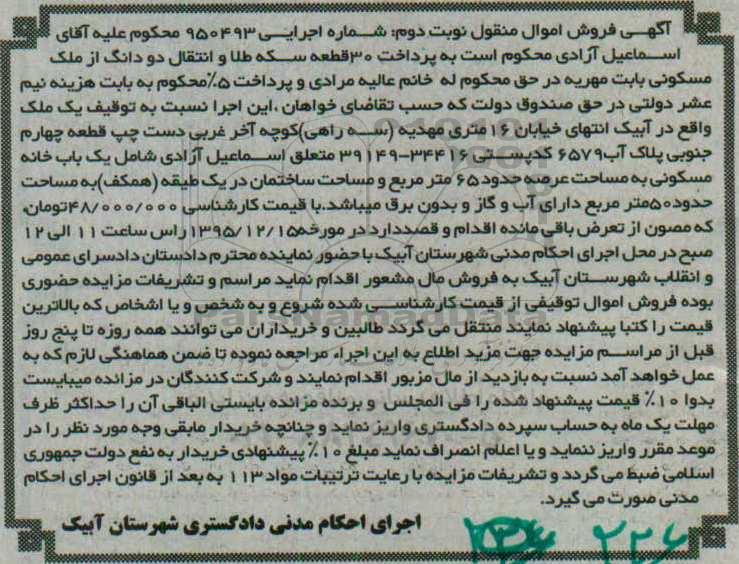 آگهـی فروش اموال منقول نوبت دوم: شـماره اجرایـی ۹۵۰۴۹۳ محکوم علیه آقای
اسـماعیل آزادی محکوم است به پرداخت ۳۰قطعه سـکه طلا و انتقال دو دانگ از ملک
مسکونی بابت مهریه در حق محکوم له خانم عالیه مرادی و پرداخت ۵٪محکوم به بابت هزینه نیم
عشر دولتی در حق صندوق دولت که حسب تقاضای خواهان ،این اجرا نسبت به توقیف یک ملک
واقع در آبیک انتهای خیابان ۱۶ متری مهدیه (سـه راهی)کوچه آخر غربی دست چپ قطعه چهارم
جنوبی پلاک آب۶۵۷۹ کدپسـتی ۳۴۴۱۶-۳۹۱۴۹ متعلق اسـماعیل آزادی شامل یک باب خانه
مسکونی به مساحت عرصه حدود۶۵ متر مربع و مساحت ساختمان در یک طبقه (همکف)به مساحت
حدود۵۰متر مربع دارای آب و گاز و بدون برق میباشد.با قیمت کارشناسی ۴۸/۰۰۰/۰۰۰تومان،
که مصون از تعرض باقی مانده اقدام و قصددارد در مورخه۱۳۹۵/۱۲/۱۵ راس ساعت ۱۱ الی ۱۲
صبح در محل اجرای احکام مدنی شهرستان آبیک با حضور نماینده محترم دادستان دادسرای عمومی
و انقلاب شهرسـتان آبیک به فروش مال مشعور اقدام نماید مراسم و تشریفات مزایده حضوری
بوده فروش اموال توقیفی از قیمت کارشناسـی شده شروع و به شخص و یا اشخاص که بالاترین
قیمت را کتبا پیشنهاد نمایند منتقل می گردد طالبین و خریداران می توانند همه روزه تا پنج روز
قبل از مراسـم مزایده جهت مزید اطلاع به این اجراء مراجعه نموده تا ضمن هماهنگی لازم که به
عمل خواهد آمد نسبت به بازدید از مال مزبور اقدام نمایند و شرکت کنندگان در مزائده میبایست
بدوا ۱۰٪ قیمت پیشنهاد شده را فی المجلس و برنده مزائده بایستی الباقی آن را حداکثر ظرف
مهلت یک ماه به حساب سپرده دادگستری واریز نماید و چنانچه خریدار مابقی وجه مورد نظر را در
موعد مقرر واریز ننماید و یا اعلام انصراف نماید مبلغ ۱۰٪ پیشنهادی خریدار به نفع دولت جمهوری
اسلامی ضبط می گردد و تشریفات مزایده با رعایت ترتیبات مواد ۱۱۳ به بعد از قانون اجرای احکام
مدنی صورت می گیرد.
اجرای احکام مدنی دادگستری شهرستان آبیک
۲۲۶